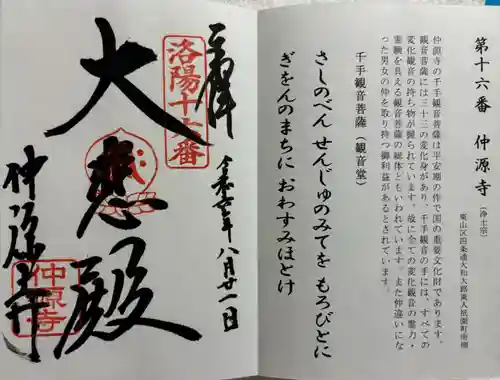 第十六番 仲源寺
（浄土宗）
東山区四条通大和大路東入祇園町南側
仲源寺の千手観音菩薩は平安期の作で国の重要文化財であります。
観音菩薩には三十三の変化身があり、千手観音の手には、すべての
変化観音の持ち物が握られています。故に全ての変化観音の霊力・
霊験を具える観音菩薩の総体ともいわれています。また仲違いにな
った男女の仲を取り持つ御利益があるとされています。
千手観音菩薩（観音堂）
さしのべん せんじゅのみてを もろびとに
ぎをんのまちに おわすみほとけ
奉拝
洛陽十六番
令和六年八月廿一日
大悲殿
仲源寺
仲源寺